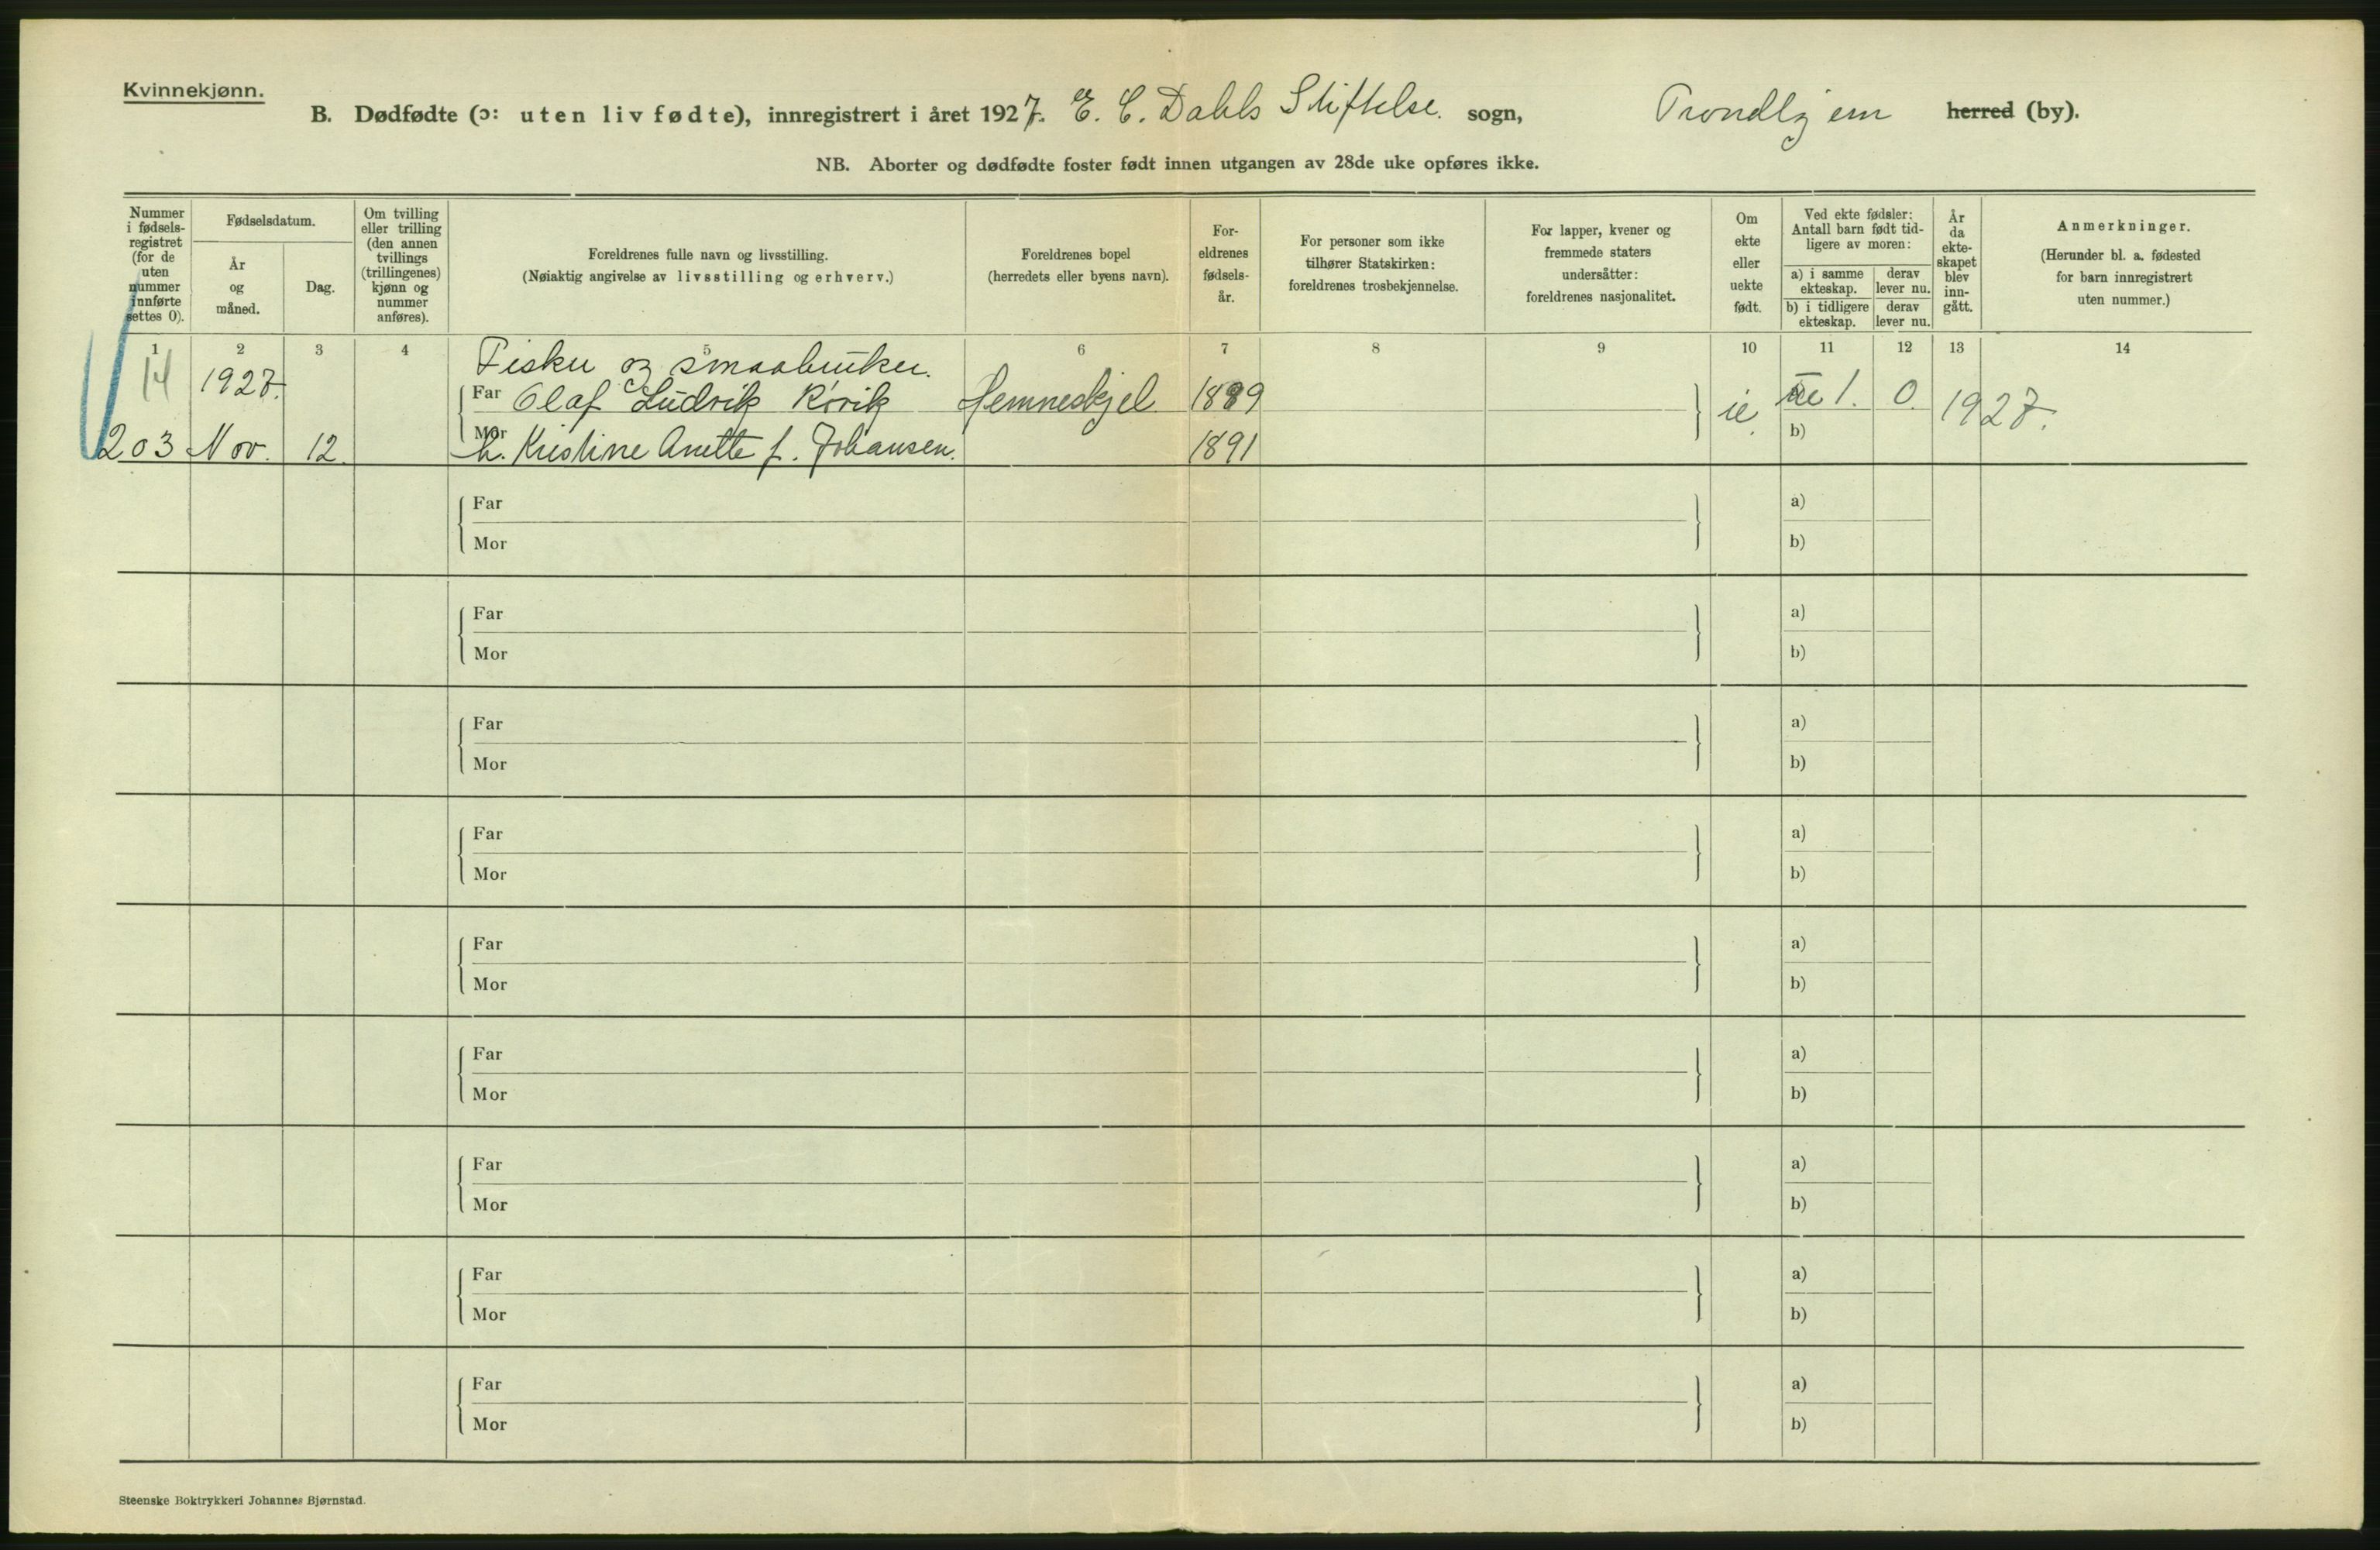 Kvinnekjønn.
B. Dødfødte (ɔ: uten liv fødte), innregistrert i året 1927. E. C. Dahls Stiftelse. sogn, Trondhjem herred (by).
NB. Aborter og dødfødte foster født innen utgangen av 28de uke opføres ikke.
Nummer i fødsels-registret (for de uten nummer innførte settes 0).
Fødselsdatum.
År og måned.
Dag.
Om tvilling eller trilling (den annen tvillings (trillingenes) kjønn og nummer anføres).
Foreldrenes fulle navn og livsstilling.
(Nøiaktig angivelse av livsstilling og erhverv.)
Foreldrenes bopel
(herredets eller byens navn).
For-eldrenes fødsels-år.
For personer som ikke tilhører Statskirken: foreldrenes trosbekjennelse.
For lapper, kvener og fremmede staters undersåtter: foreldrenes nasjonalitet.
Om ekte eller uekte født.
Ved ekte fødsler: Antall barn født tid-ligere av moren:
a) i samme ekteskap.
derav lever nu.
b) i tidligere ekteskap.
derav lever nu.
År da ekte-skapet blev inn-gått.
Anmerkninger.
(Herunder bl. a. fødested for barn innregistrert uten nummer.)
1 2 3 4 5 6 7 8 9 10 11 12 13 14
Fisker og smaabruker.
14 1927. Far Olaf Ludvik Rövik Hemneskjel 1889 ie 1. 0. 1927.
Mor b)
203 Nov. 12. h. Kristine Anette f. Johansen. 1891
Far a)
Mor b)
Far a)
Mor b)
Far a)
Mor b)
Far a)
Mor b)
Far a)
Mor b)
Far a)
Mor b)
Far a)
Mor b)
Far a)
Mor b)
Far a)
Mor b)
Steenske Boktrykkeri Johannes Bjørnstad.